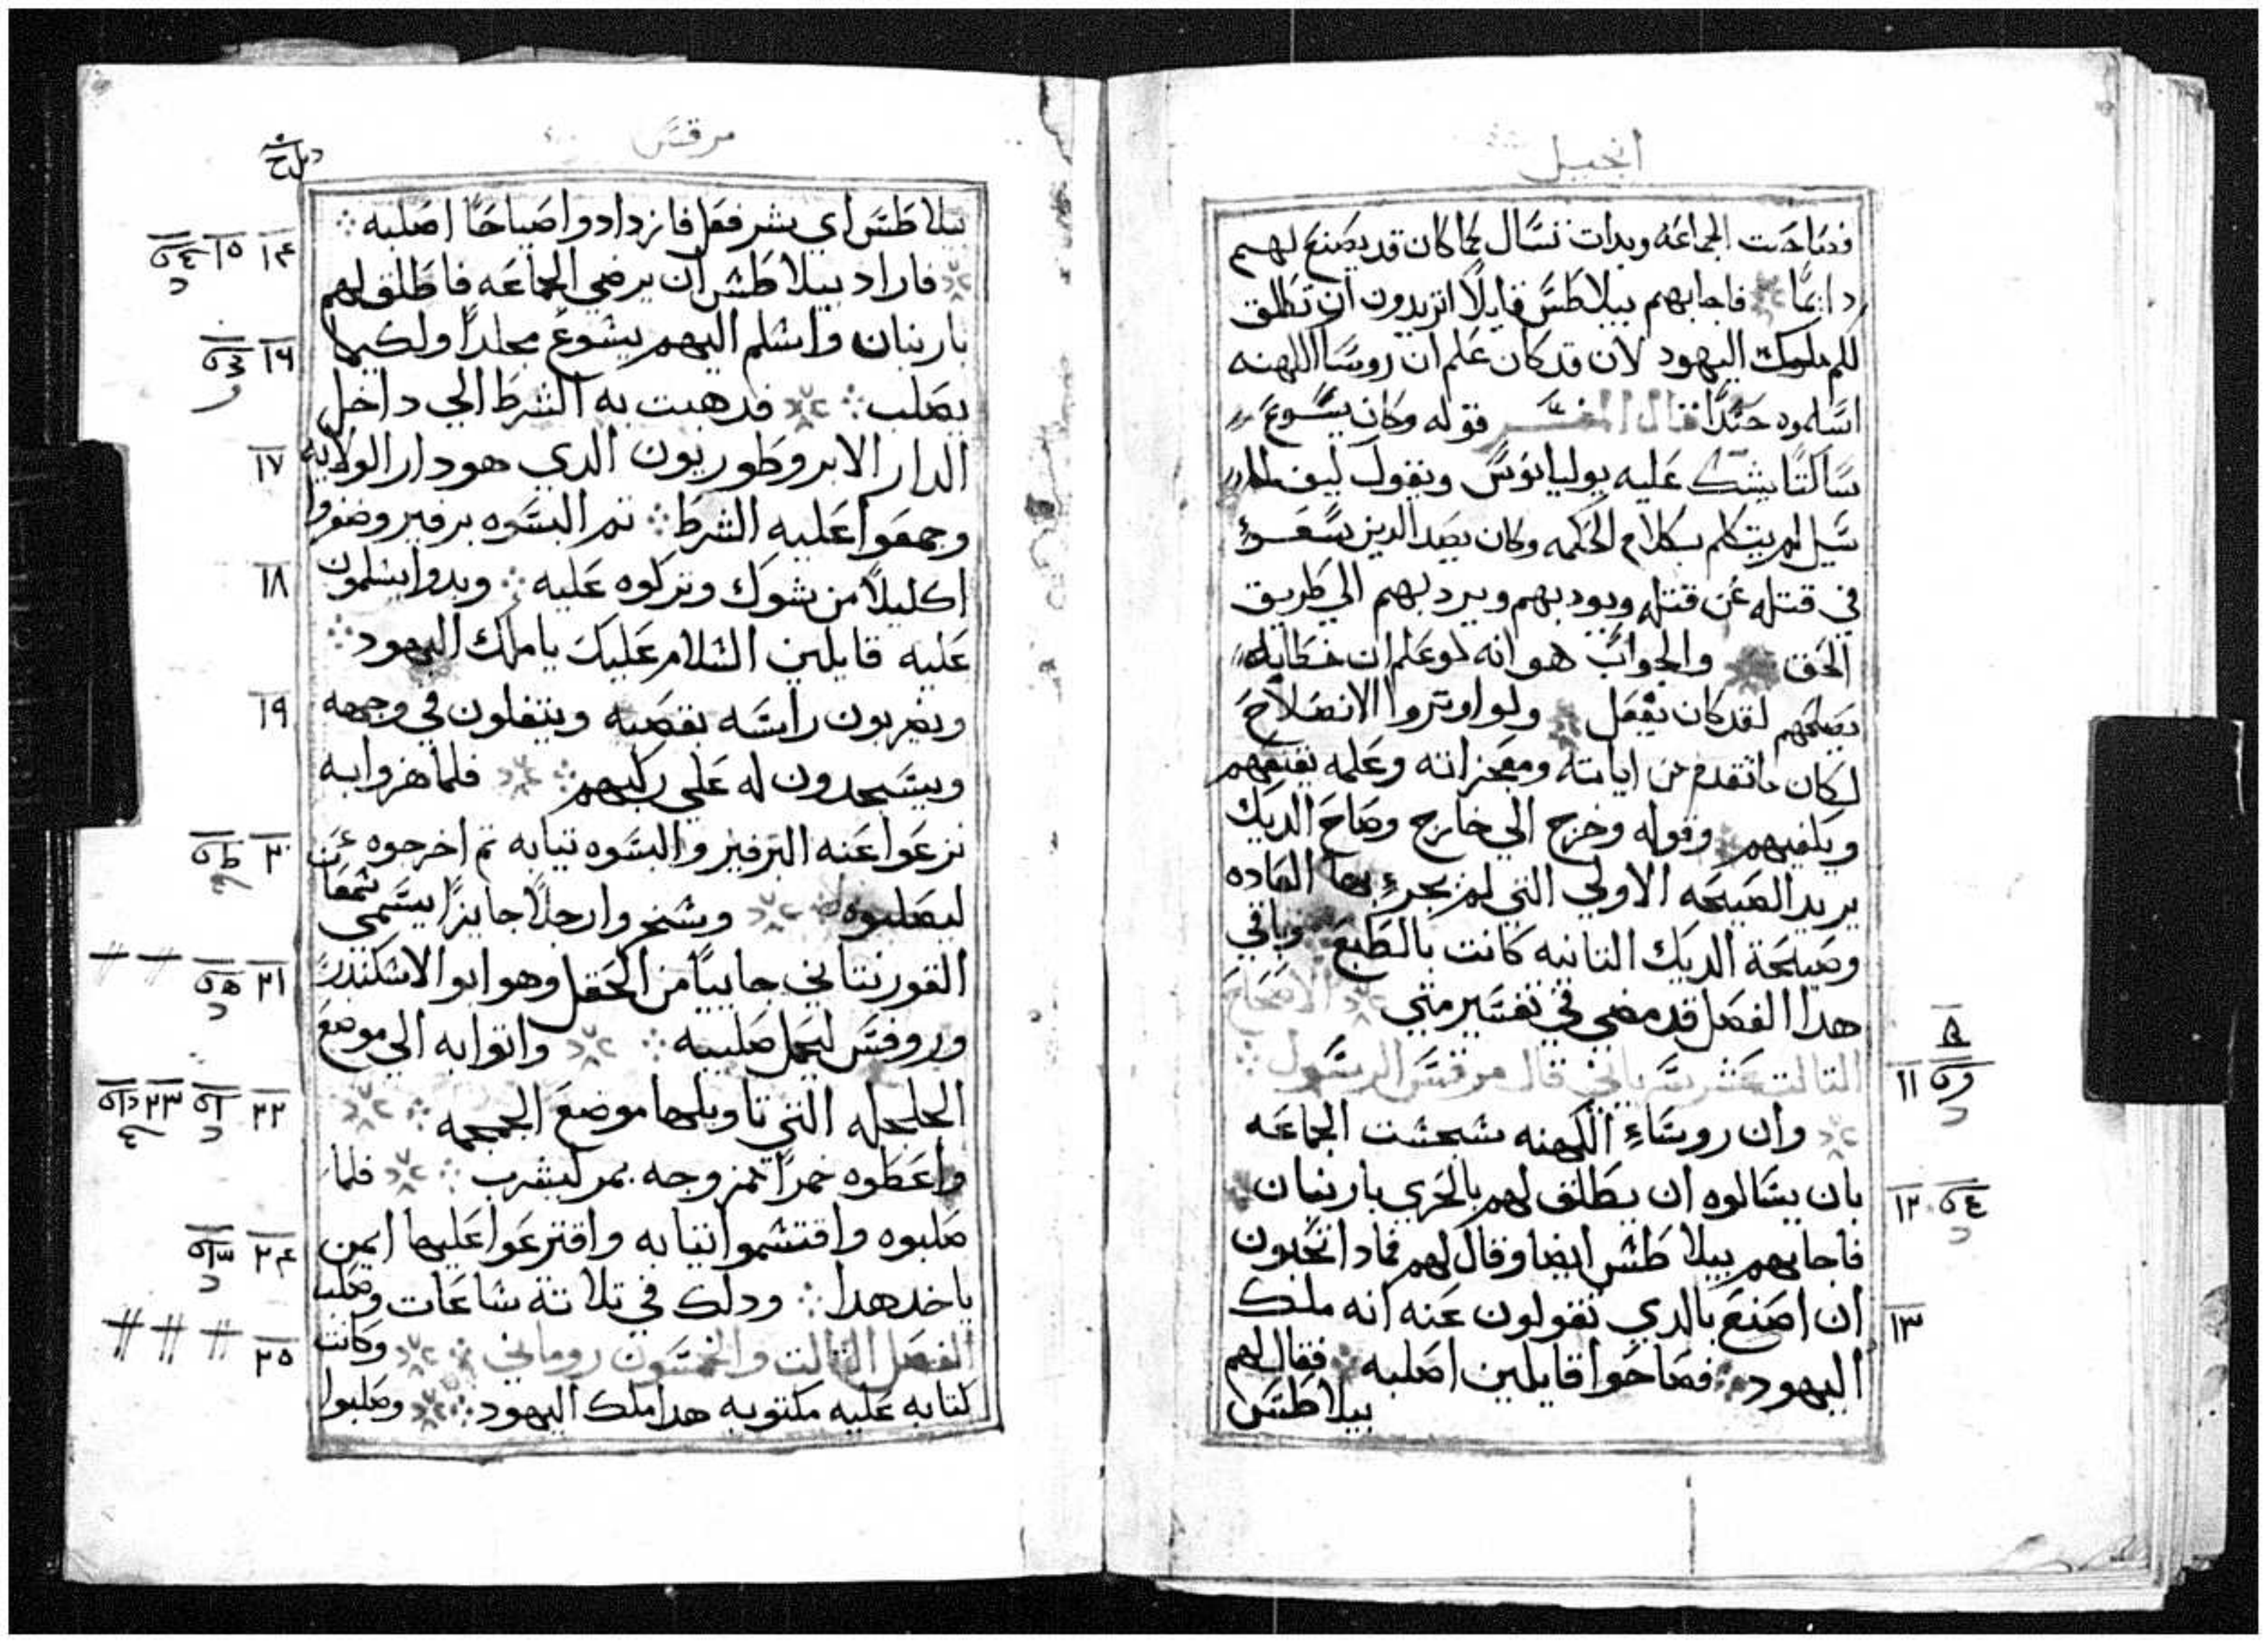 انجيل
فصاحت الجماعه وبدات تسال كما كان قد يصنع لهم
دايمًا فاجابهم بيلاطس قايلًا اتريدون ان نطلق
لكم ملك اليهود لان قد كان علم ان روسا الكهنه
اسلموه حسدًا قال المفسر فقوله وكان يسوع
ساكتًا يشك عليه يوليانوس ويقول كيف
سيل لم يتكلم بكلام الحكمه وكان يصد الدين يسعو
في قتله عن قتله ويودبهم ويردبهم الي طريق
الحق والجواب هو انه لو علم ان خطابه
يصلحهم لقد كان يفعل ولو اوثروا الانصلاح
لكان ما تقدم من اياته ومعجزاته وعلمه يقنعهم
ويكفيهم وقوله وخرج الي خارج وصاح الديك
يريد الصيحه الاولي التي لم تجر بها العاده
وصيحة الديك التانيه كانت بالطبع وباقي
هدا الفصل قد مضي في تفسير متي الاصحاح
التالت عشر سرياني قال مرقس الرسول
١١ وان روساء الكهنه سجست الجماعه
١٢ بان يسالوه ان يطلق لهم بالحري باربنان
فاجابهم بيلاطس ايضا وقال لهم فمادا تحبون
١٣ ان اصنع بالدي تقولون عنه انه ملك
اليهود فصاحوا قايلين اصلبه فقال لهم
بيلاطس
مرقس
بيلاطس اي بشر فعل فازدادوا صياحًا اصلبه
١٤ ١٥ فاراد بيلاطس ان يرضي الجماعه فاطلق لهم
١٦ باربنان واسلم اليهم يشوع مجلدًا ولكيما
يصلب فدهبت به الشرط الي داخل
١٧ الدار الابروطوريون الدي هو دار الولايه
وجمعوا عليه الشرط تم البسوه برفير وضفروا
١٨ اكليلًا من شوك وتركوه عليه وبدوا يسلمون
عليه قايلين السلام عليك يا ملك اليهود
١٩ ويضربون راسه بقصبه ويتفلون في وجهه
ويسجدون له علي ركبهم فلما هزوا به
٢٠ نزعوا عنه البرفير والبسوه تيابه تم اخرجوه عن
ليصلبوه وسخروا رجلًا جايزًا يسمي شمعان
٢١ القورنتاني جاييًا من الحقل وهو ابو الاسكندر
وروفس ليحمل صليبه واتوا به الي موضع
٢٢ ٢٣ الجلجله التي تاويلها موضع الجمجمه
واعطوه خمرًا ممزوجه بمر ليشرب فلما
٢٤ صلبوه واقتسموا تيابه واقترعوا عليها ايمن
ياخد هدا ودلك في تلاتة ساعات وصلب
٢٥ الفصل التالت والخمسون روماني وكانت
كتابه عليه مكتوبه هدا ملك اليهود وصلبوا